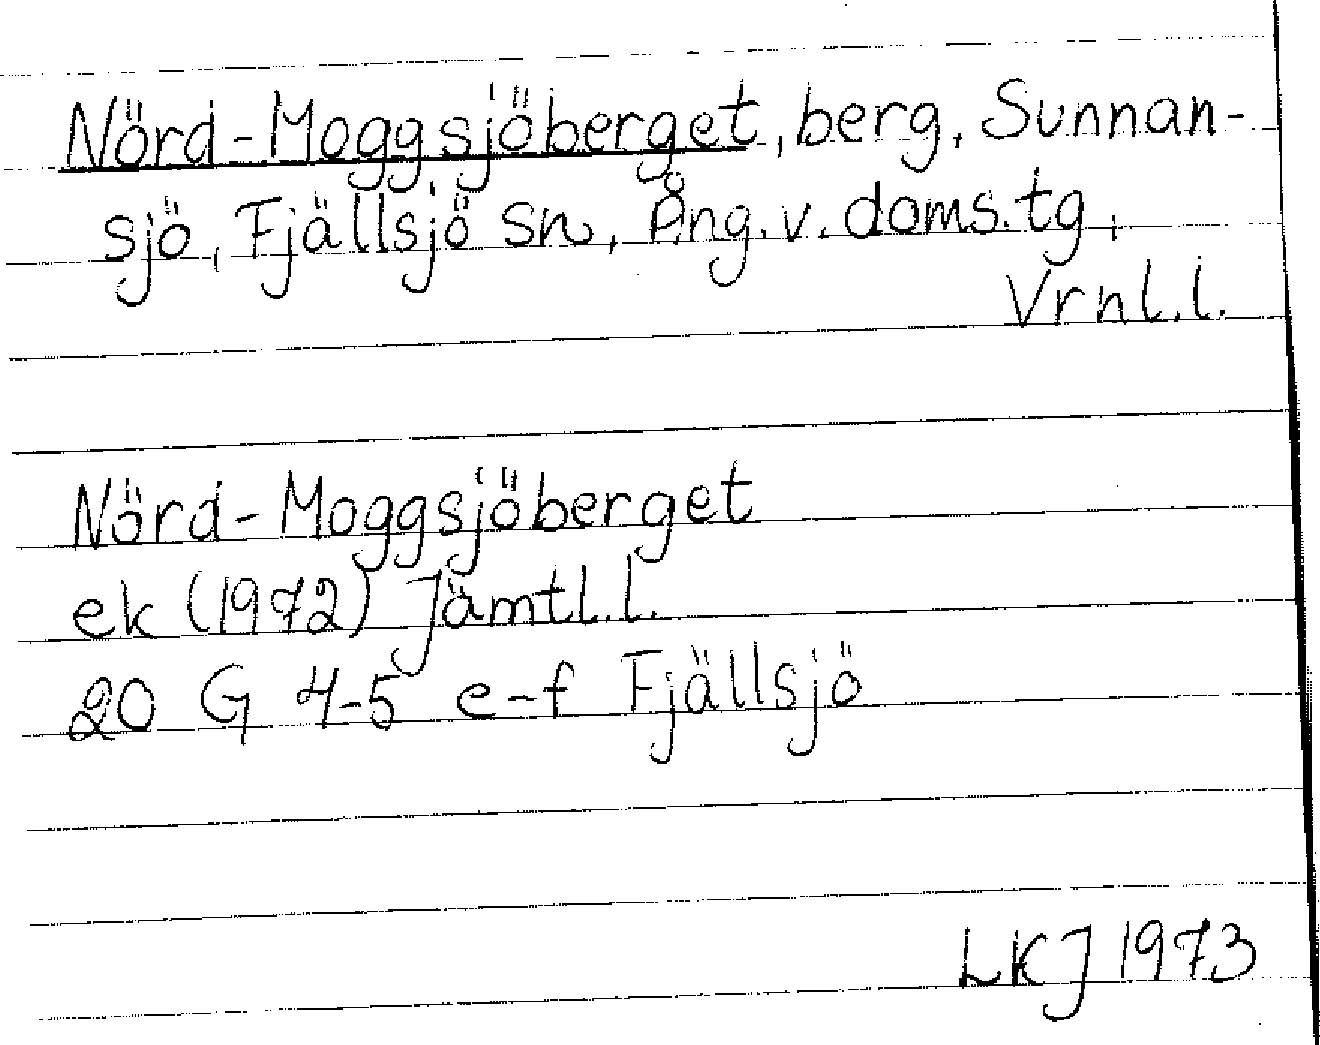 Nörd-Moggsjöberget, berg, Sunnan-
sjö, Fjällsjö sn, Ång.v.doms.tg,
Vrnl.l.
Nörd-Moggsjöberget
ek (1972) Jämtl.l.
20 G 4-5 e-f Fjällsjö
LKJ 1973